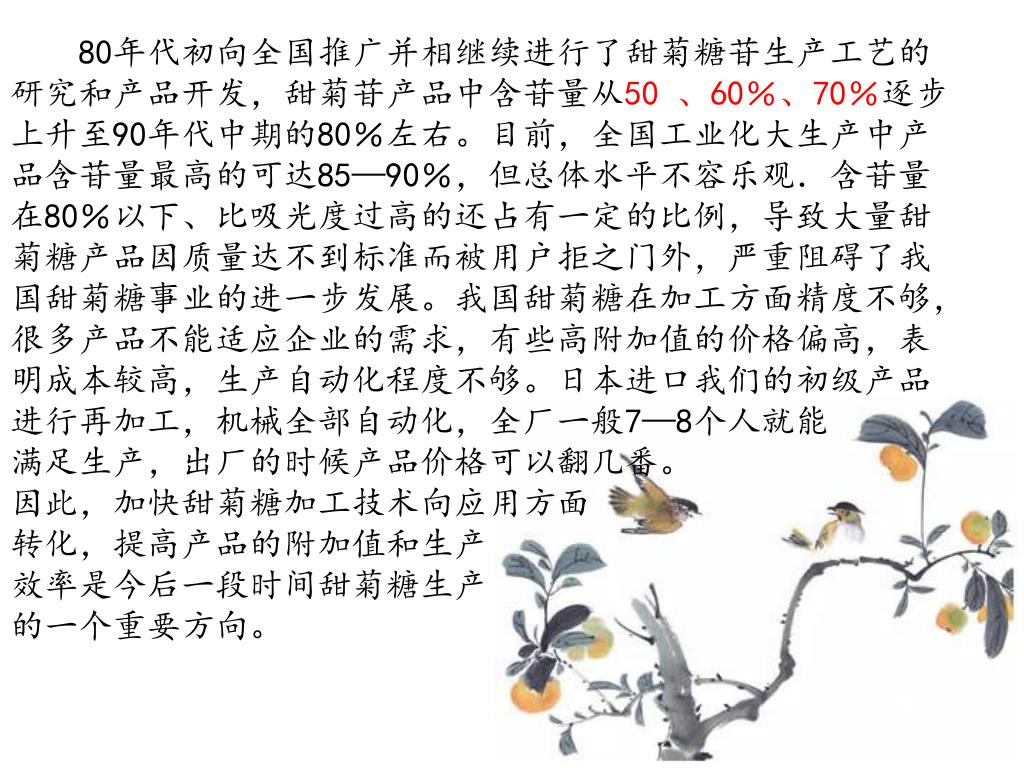 80年代初向全国推广并相继续进行了甜菊糖苷生产工艺的
研究和产品开发，甜菊苷产品中含苷量从50 、60％、70％逐步
上升至90年代中期的80％左右。目前，全国工业化大生产中产
品含苷量最高的可达85—90％，但总体水平不容乐观．含苷量
在80％以下、比吸光度过高的还占有一定的比例，导致大量甜
菊糖产品因质量达不到标准而被用户拒之门外，严重阻碍了我
国甜菊糖事业的进一步发展。我国甜菊糖在加工方面精度不够，
很多产品不能适应企业的需求，有些高附加值的价格偏高，表
明成本较高，生产自动化程度不够。日本进口我们的初级产品
进行再加工，机械全部自动化，全厂一般7—8个人就能
满足生产，出厂的时候产品价格可以翻几番。
因此，加快甜菊糖加工技术向应用方面
转化，提高产品的附加值和生产
效率是今后一段时间甜菊糖生产
的一个重要方向。